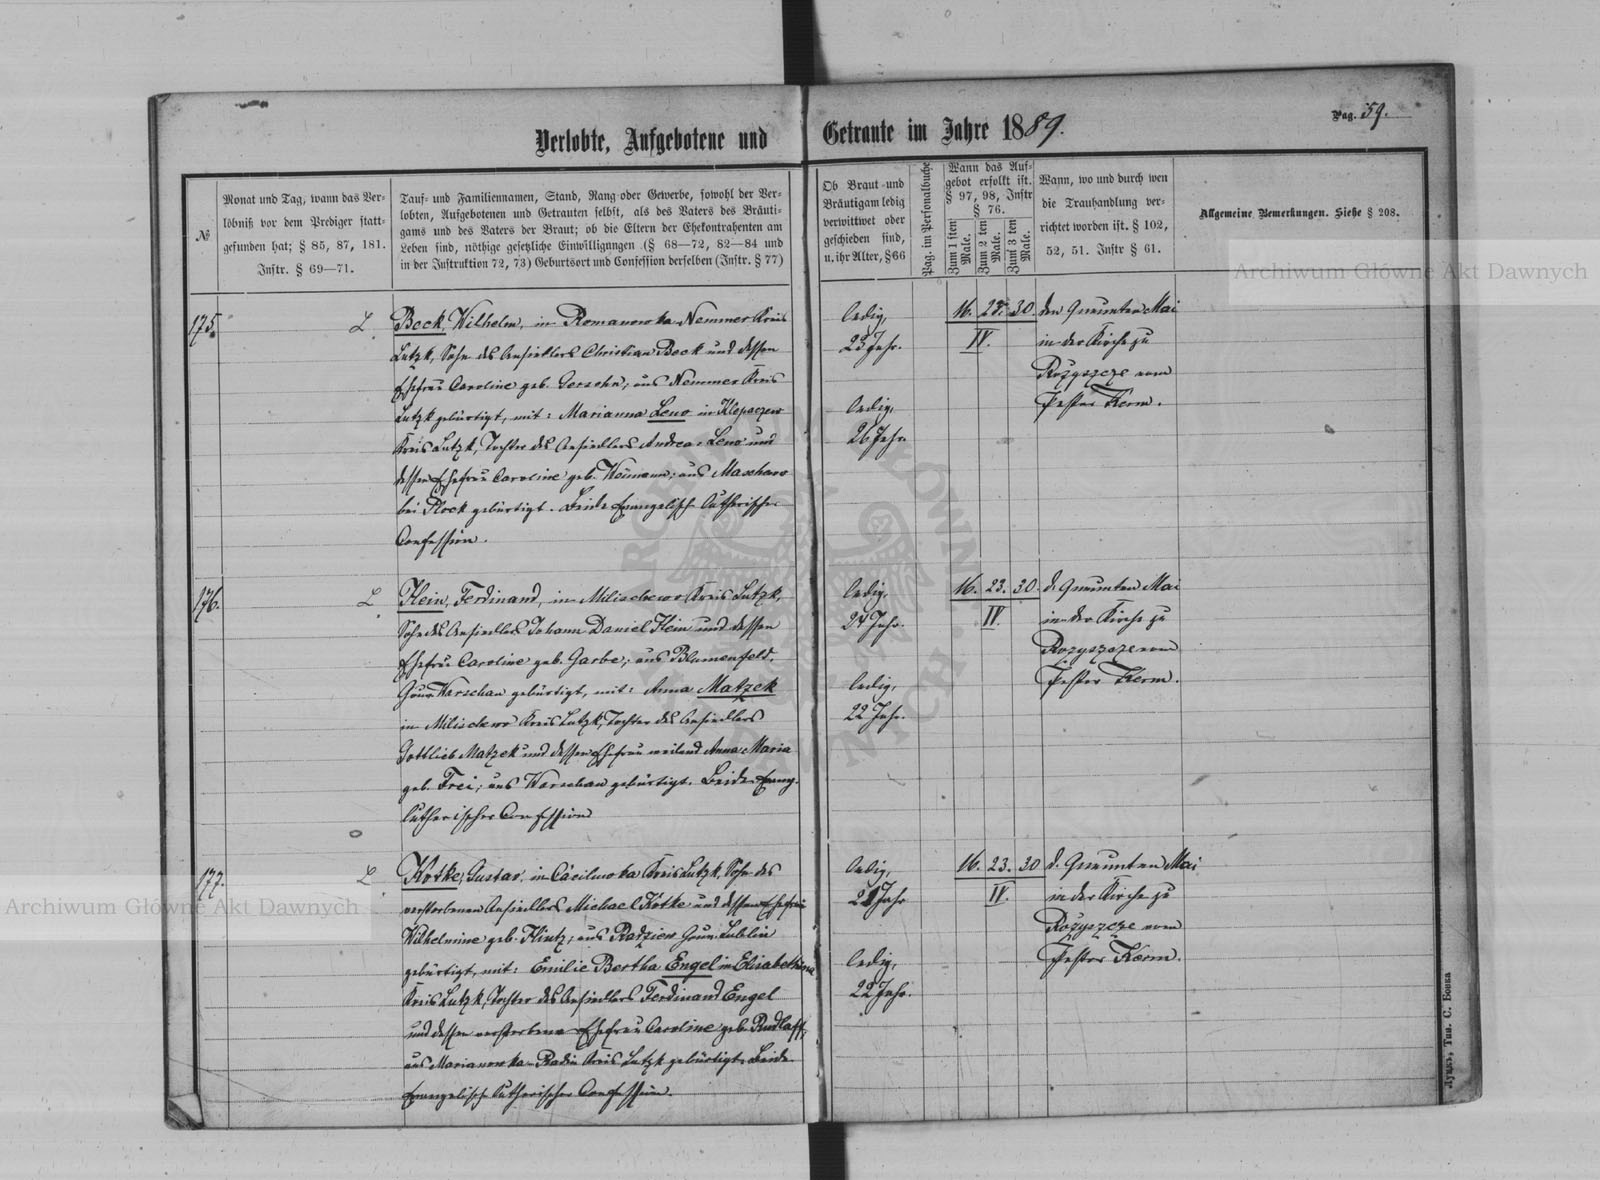 Pag. 59.
Verlobte, Aufgebotene und Getraute im Jahre 1889.
№
Monat und Tag, wann das Ver-
löbniß vor dem Prediger statt-
gefunden hat; § 85, 87, 181.
Instr. § 69—71.
Tauf- und Familiennamen, Stand, Rang oder Gewerbe, sowohl der Ver-
lobten, Aufgebotenen und Getrauten selbst, als des Vaters des Bräuti-
gams und des Vaters der Braut; ob die Eltern der Ehekontrahenten am
Leben sind, nöthige gesetzliche Einwilligungen (§ 68—72, 82—84 und
in der Instruktion 72, 73) Geburtsort und Confession derselben (Instr. § 77)
Ob Braut und
Bräutigam ledig
verwittwet oder
geschieden sind,
u. ihr Alter, § 66
Pag. im Personalbuche
Wann das Auf-
gebot erfolgt ist.
§ 97, 98, Instr
§ 76.
Zum 1 sten Male.
Zum 2 ten Male.
Zum 3 ten Male.
Wann, wo und durch wen
die Trauhandlung ver-
richtet worden ist. § 102,
52, 51. Instr § 61.
Allgemeine Bemerkungen. Siehe § 208.
175.
L.
Beck, Wilhelm, in Romanowka-Nemmer Kreis
Lutzk, Sohn des Ansiedlers Christian Beck und dessen
Ehefrau Caroline geb. Gersehn, aus Nemmer Kreis
Lutzk gebürtigt, mit: Marianna Lenz in Klepaczew
Kreis Lutzk, Tochter des Ansiedlers Andreas Lenz und
dessen Ehefrau Caroline geb. Neumann, aus
bei Plock gebürtigt. Beide Evangelisch Lutherischer
Confession.
ledig,
23 Jahr.
ledig,
26 Jahr
16. 23. 30.
IV.
den Neunten Mai
in der Kirche zu
Rożyszcze vom
Pastor Kerm.
176.
L.
Klein, Ferdinand, in Milischewo Kreis Lutzk,
Sohn des Ansiedlers Johann Daniel Klein und dessen
Ehefrau Caroline geb. Garbe, aus Blumenfeld,
Gouv. Warschau gebürtigt, mit: Anna Matzek
in Milischewo Kreis Lutzk, Tochter des Ansiedlers
Gottlieb Matzek und dessen Ehefrau weiland Anna Maria
geb. Frei, aus Warschau gebürtigt. Beide Evang.
lutherischer Confession
ledig,
24 Jahr.
ledig,
22 Jahr.
16. 23. 30.
IV.
d. Neunten Mai
in der Kirche zu
Rożyszcze vom
Pastor Kerm.
177.
L
Kotke, Gustav, in Cäcilinowka Kreis Lutzk, Sohn des
verstorbenen Ansiedlers Michael Kotke und dessen Ehefrau
Wilhelmine geb. Hintz, aus Radziew Gouv. Lublin
gebürtigt, mit: Emilie Bertha Engel in Elisabethina
Kreis Lutzk, Tochter des Ansiedlers Ferdinand Engel
und dessen verstorbene Ehefrau Caroline geb. Rudlaff,
aus Marianowka-Radin Kreis Lutzk gebürtigt. Beide
Evangelisch Lutherischer Confession.
ledig,
21 Jahr
ledig,
22 Jahr.
16. 23. 30
IV.
d. Neunten Mai
in der Kirche zu
Rożyszcze vom
Pastor Kerm.
Луцкъ, Тип. С. Бовка
Archiwum Główne Akt Dawnych
Archiwum Główne Akt Dawnych